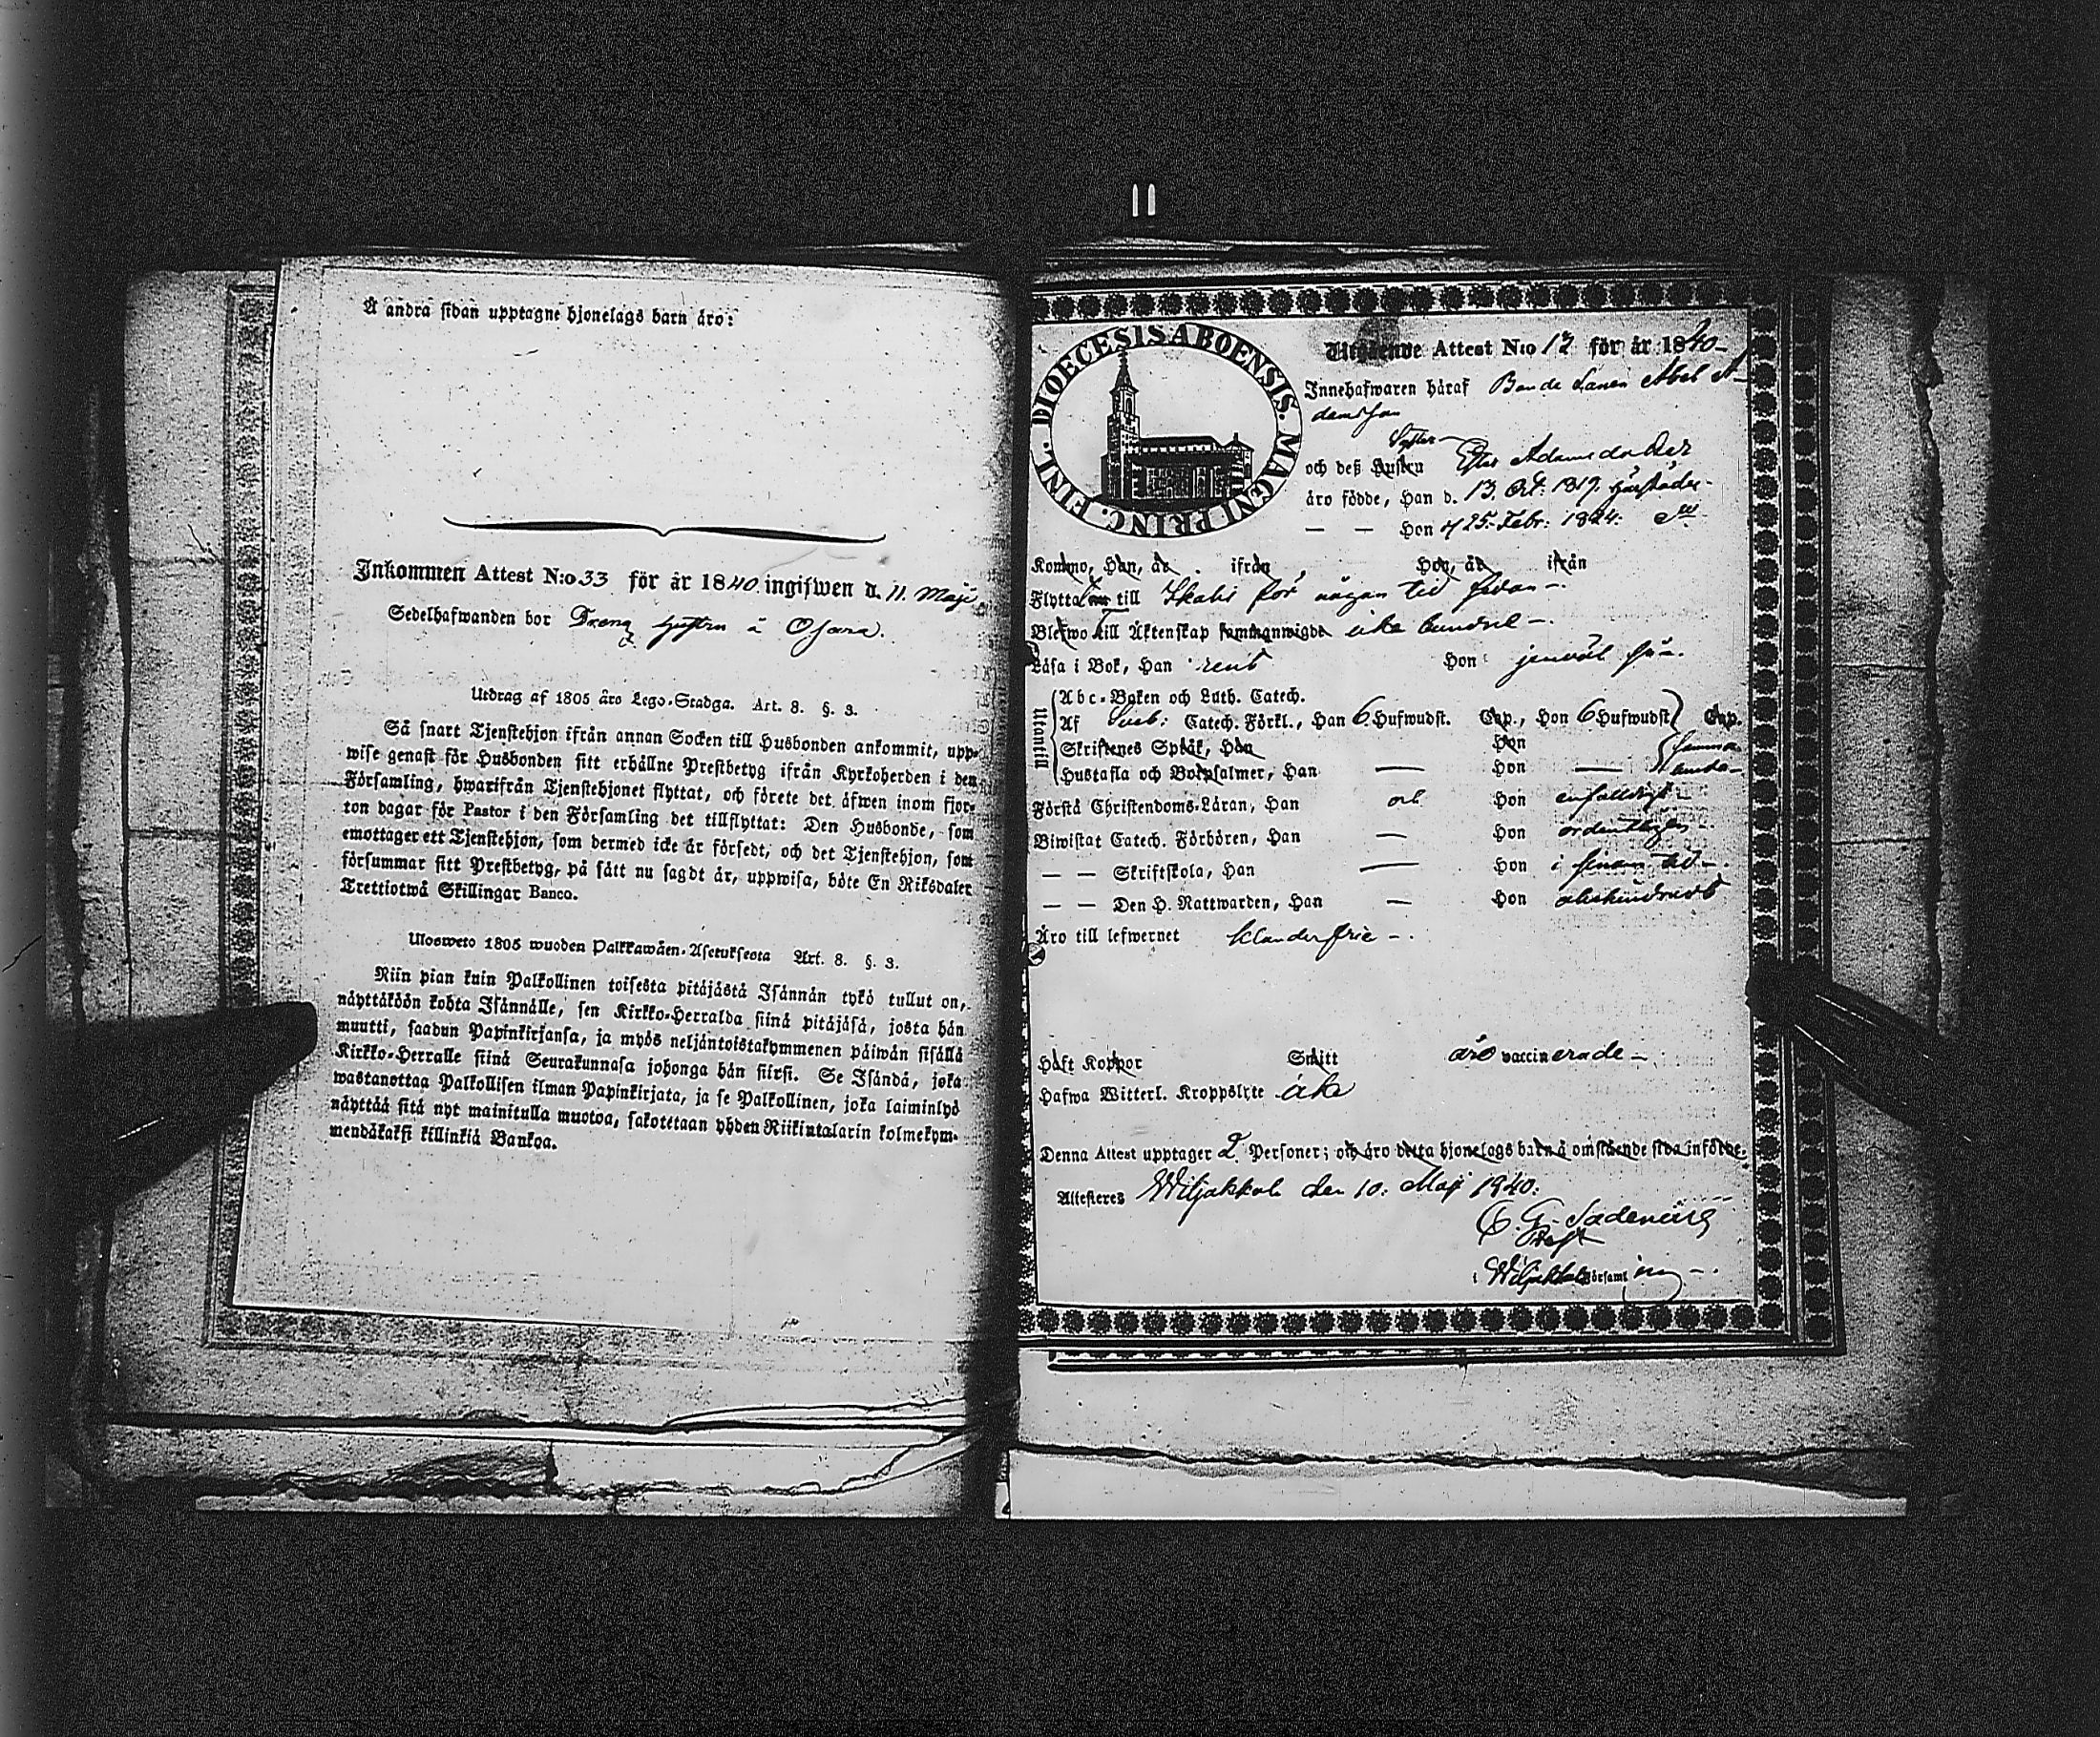 Å andra sidan upptagne hjonelags barn äro:
Inkommen Attest N:o 33 för år 1840 ingifwen d. 11. Maji
Sedelhafwanden bor Dreng å Osara.
Utdrag af 1805 års Lego-Stadga. Art. 8. §. 3.
Så snart Tjenstehjon ifrån annan Socken till Husbonden ankommit, upp-
wise genast för Husbonden sitt erhållne Prestbetyg ifrån Kyrkoherden i den
Församling, hwarifrån Tjenstehjonet flyttat, och förete det äfwen inom fjor-
ton dagar för Pastor i den Församling det tillflyttat: Den Husbonde, som
emottager ett Tjenstehjon, som dermed icke är försedt, och det Tjenstehjon, som
försummar sitt Prestbetyg, på sätt nu sagdt är, uppwisa, böte En Riksdaler
Trettiotwå Skillingar Banco.
Ulosweto 1805 wuoden Palkkawäen-Asetuksesta Art. 8. §. 3.
Niin pian kuin Palkollinen toisesta pitäjästä Isännän tykö tullut on,
näyttäköön kohta Isännälle, sen Kirkko-Herralda siinä pitäjäsä, josta hän
muutti, saadun Papinkirjansa, ja myös neljäntoistakymmenen päiwän sisällä
Kirkko-Herralle siinä Seurakunnasa johonga hän siirsi. Se Isändä, joka
wastanottaa Palkollisen ilman Papinkirjata, ja se Palkollinen, joka laiminlyö
näyttää sitä nyt mainitulla muotoa, sakotetaan yhden Riikintalarin kolmekym-
mendäkaksi killinkiä Bankoa.
DIOECESIS ABOENSIS. MAGNI PRINC. FINL.
Utgående Attest N:o 12 för år 1840
Innehafwaren häraf Bonde Sonen Abel A-
damsson
Syster
och deß Hustru Adamsdotter
äro födde, Han d. 13. Oct: 1819. härstädes
— — Hon d 25. Febr: 1824.
Kommo, Han, år ifrån Hon, år ifrån
Flytta till Skatis för någon tid sedan
Blefwo till Äktenskap sammanwigde
Läsa i Bok, Han rent Hon jemväl så
Utantill
Abc-Boken och Luth. Catech.
Af Sveb: Catech. Förkl., Han 6 Hufwudst. Cap., Hon 6 Hufwudst. Cap.
Skriftenes Språk, Han Hon
Hustafla och Botpsalmer, Han — Hon —
Förstå Christendoms-Läran, Han och Hon enfaldigt
Biwistat Catech. Förhören, Han — Hon ordentligen
— — Skriftskola, Han — Hon i sinom tid
— — Den H. Nattwarden, Han — Hon
Äro till lefwernet klanderfrie
Haft Koppor Smitt äro vaccinerade
Hafwa Witterl. Kroppslyte
Denna Attest upptager 2 Personer; och äro detta hjonelags barn å omstående sida införde.
Attesteres Wiljakkala den 10. Maji 1840.
C. G.
i Wiljakkala Församling